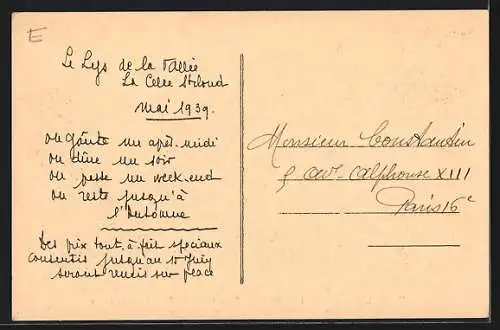 E
Le Lys de la Vallée
La Celle St Cloud
Mai 1939.
On goûte un après-midi
on dîne un soir
on passe un week-end
on reste jusqu'à
l'Automne
Des prix tout à fait spéciaux
consentis jusqu'au 15 Juin
seront remis sur place
Monsieur Constantin
5 Ave Alphonse XIII
Paris 16e